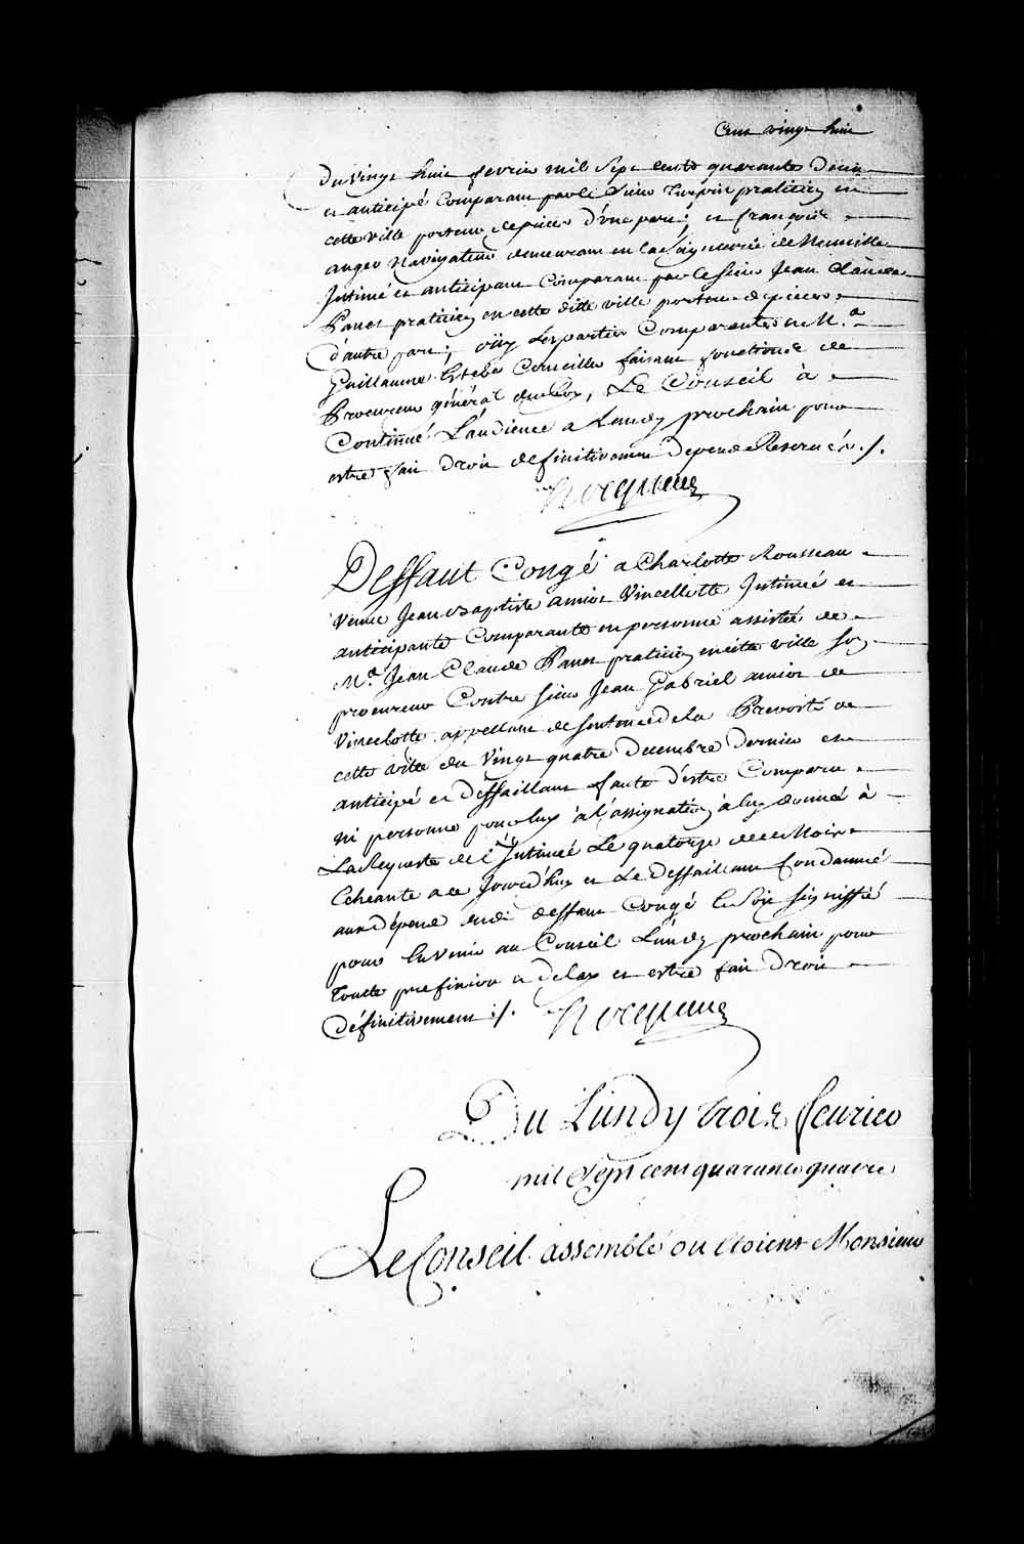 Cent vingt huit
Du Vingt huit fevrier mil Sept cents quarante deux
et anticipé Comparant par le Sieur Turpin praticien en
cette ville porteur de pieces d'une part; et françois
anger Navigateur demeurant en la Seigneurie de Neuville
Intimé et anticipant Comparant par le Sieur Jean Claude
Panet praticien en cette ditte ville porteur de pieces
d'autre part; oüy Les parties Comparantes et M.e
Guillaume Estebe Conseiller faisant fonctions de
Procureur général du Roy, Le Conseil à
Continué L'audience a Lundy prochain pour
estre fait droit definitivement Depens Reservés ./.
hocquart
Deffaut Congé a Charlotte Rousseau
Veuve Jean baptiste amiot Vincellotte Intimée et
anticipante Comparante en personne assistée de
M.e Jean Claude Panet praticien en cette ville son
procureur Contre sieur Jean Gabriel amiot de
Vincelotte appellant de sentence de la Prevosté de
cette ville du Vingt quatre Decembre Dernier et
anticipé et Deffaillant faute d'estre Comparu
ni personne pour luy à l'assignation à luy donné à
La Requeste de l'Intimée Le quatorze de ce Mois
Echeante a ce Jourd'huy et Le Deffaillant Condamné
aux dépens dudit deffaut Congé Et Soit signiffié
pour En venir au Conseil Lundy prochain pour
Toutte prefixion et Delay et estre fait Droit
Définitivement ./. hocquart
Du Lundy trois feurier
mil Sept cent quarante quatre
Le Conseil assemblé ou Etoient Monsieur